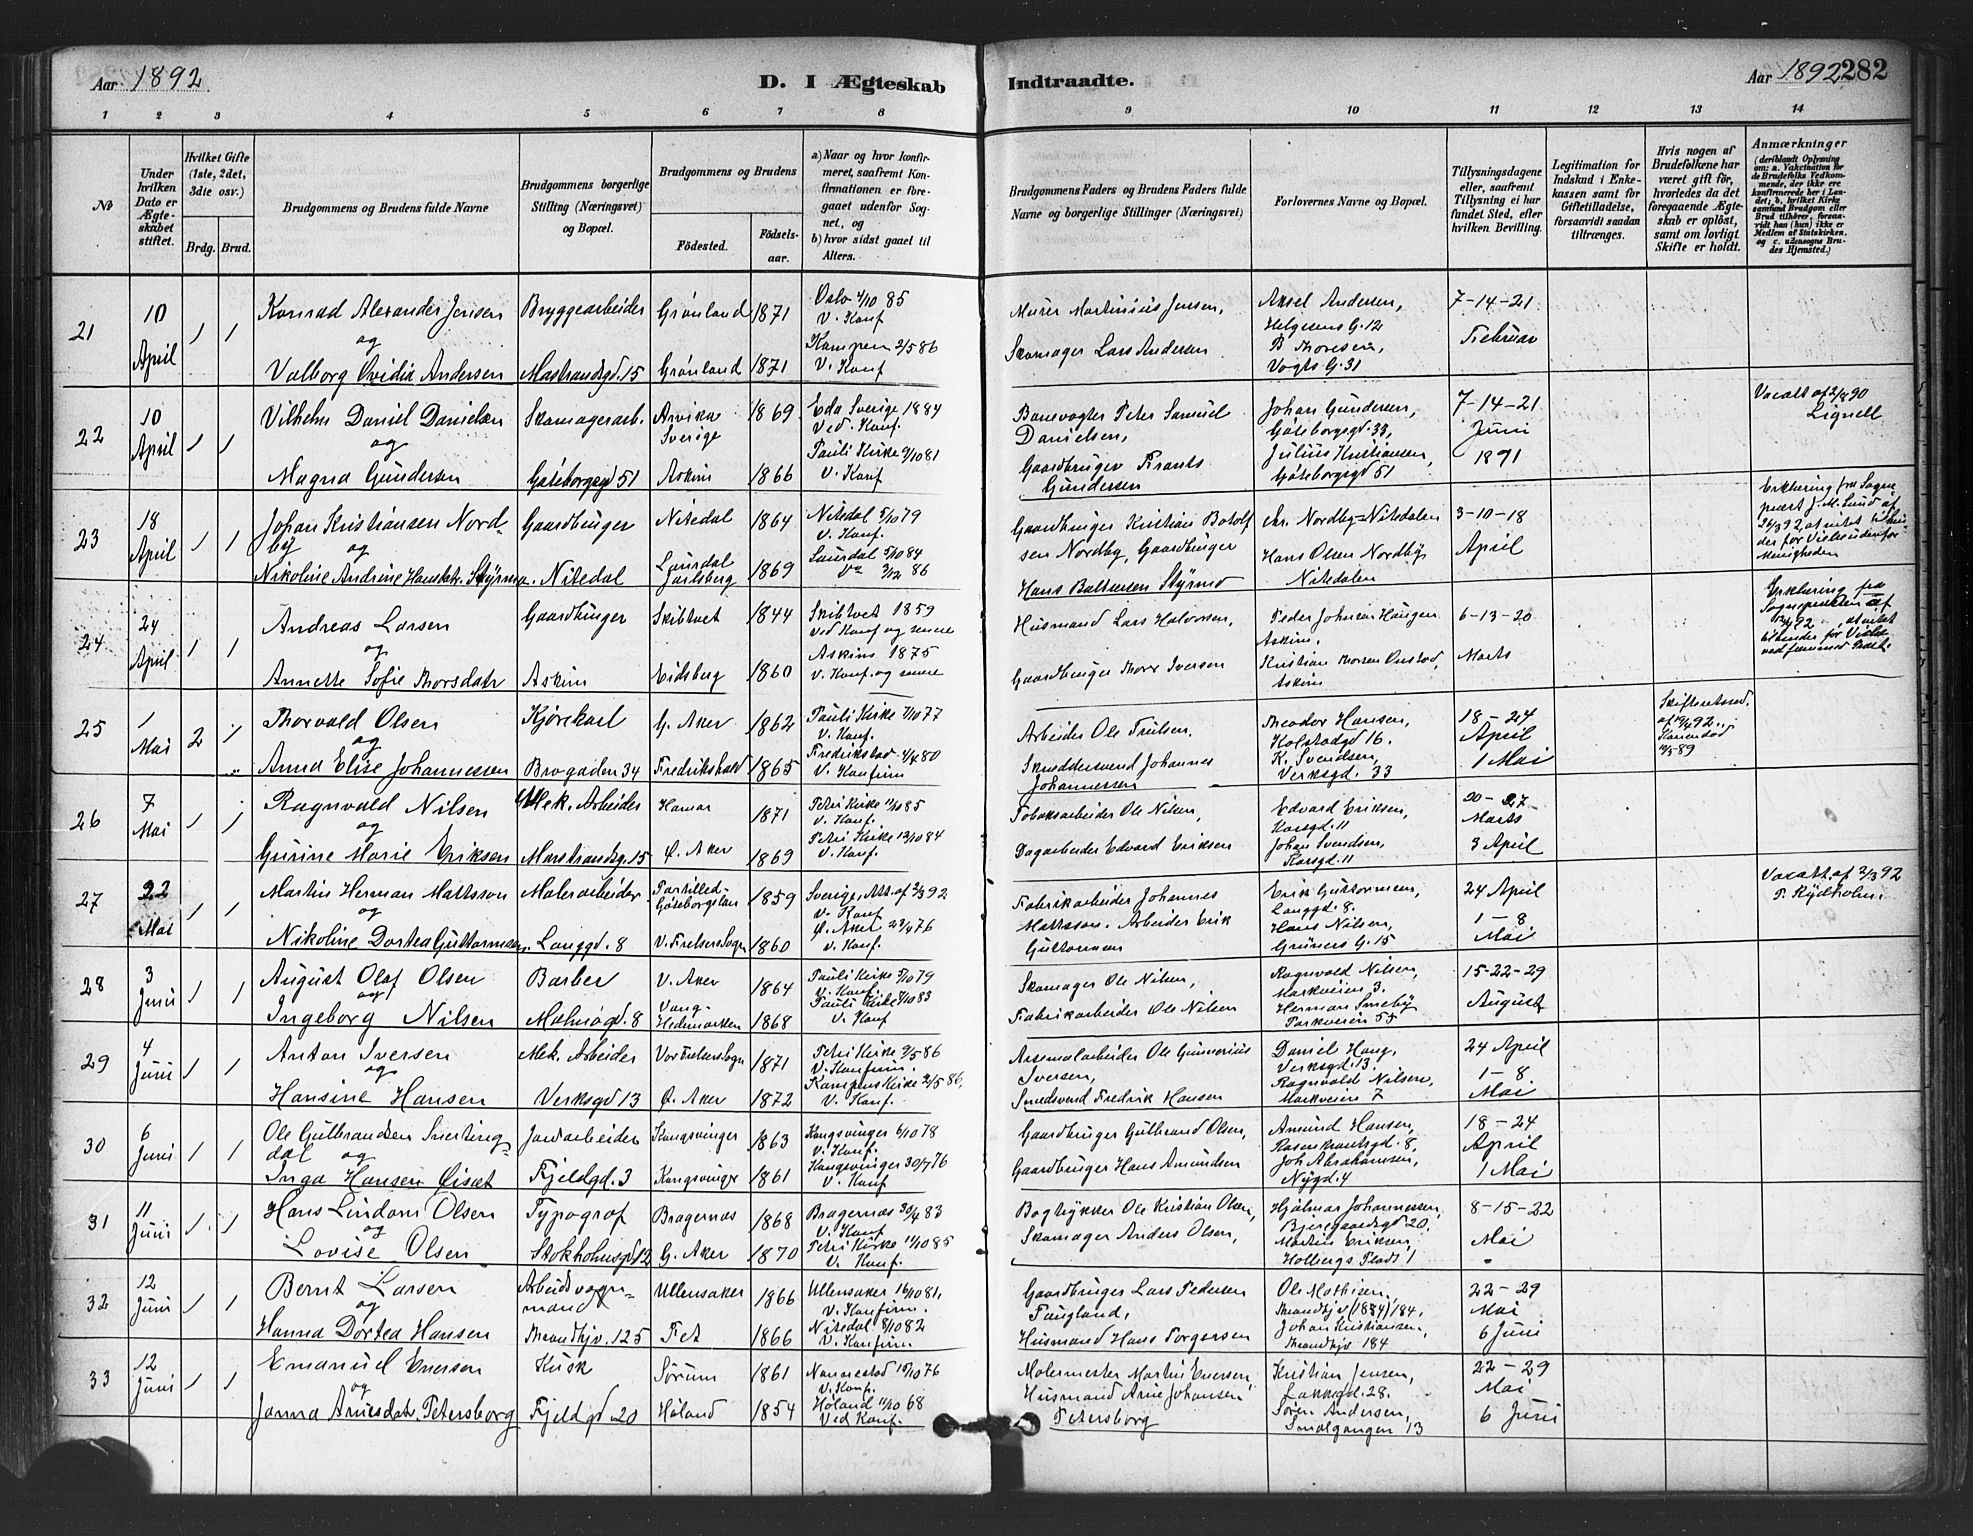 Aar 1892
D. I Ægteskab
Indtraadte.
Aar 1892 282
1 2 3 4 5 6 7 8 9 10 11 12 13 14
No
Under hvilken Dato er Ægteskabet stiftet.
Hvilket Gifte (1ste, 2det, 3die osv.)
Brdg. Brud.
Brudgommens og Brudens fulde Navne
Brudgommens borgerlige Stilling (Næringsvei) og Bopæl.
Brudgommens og Brudens
Födested.
Födselsaar.
a) Naar og hvor konfirmeret, saafremt Konfirmationen er foregaaet udenfor Sognet, og
b) hvor sidst gaaet til Alters.
Brudgommens Faders og Brudens Faders fulde Navne og borgerlige Stillinger (Næringsvei)
Forlovernes Navne og Bopæl.
Tillysningsdagene eller, saafremt Tillysning ei har fundet Sted, efter hvilken Bevilling.
Legitimation for Indskud i Enkekassen samt for Giftetilladelse, forsaavidt saadan tiltrænges.
Hvis nogen af Brudefolkene har været gift för, hvorledes da det foregaaende Ægteskab er oplöst, samt om lovligt Skifte er holdt.
Anmærkninger
(deriblandt Oplysning om: a. Vakcination for de Brudefolks Vedkommende, der ikke ere konfirmerede her i Landet; b. hvilket Kirkesamfund Brudgom eller Brud tilhörer, forsaavidt han (hun) ikke er Medlem af Statskirken, og c. udensogns Brudes Hjemsted.)
21 10 April 1 1
Konrad Alexander Jensen Bryggearbeider Grönland 1871 Oslo 4/10 85 V. Konf
og
Valborg Ovidia Andersen Mastrandsgd. 15 Grönland 1871 Kampen 2/5 86 V. Konf
Murer Martinius Jensen,
Skomager Lars Andersen
Aksel Andersen, Helgesens G. 12
B Thoresen, Vogts G. 31
7-14-21 Februar
22 10 April 1 1
Vilhelm Daniel Danielsen Skomagerarb. Arvika Sverige 1869 Eda Sverige 1884 Ved Konf.
og
Magna Gundersen Göteborgsgd 51 Askim 1866 Pauli Kirke 9/10 81 V. Konf
Banevogter Peter Samuel Danielsen,
Gaardbruger Frants Gundersen
Johan Gundersen, Göteborgsgd. 33,
Julius Kristiansen, Göteborgsgd 51
7-14-21 Juni 1891
Vaxatt af 2/8 90 Lignell
23 18 April 1 1
Johan Kristiansen Nordby Gaardbruger Nitedal 1864 Nitedal 5/10 79 V. Konf.
og
Nikoline Andrine Hansdtr. Styrmo. Nitedal Laurdal Jarlsberg 1869 Laurdal 5/10 84
Gaardbruger Kristian Botolfsen Nordby, Gaardbruger
Hans Baltersen Styrmo
Chr. Nordby-Nitedalen
Hans Olsen Nordby, Nitedalen
3-10-18 April
Erklæring fra Sogneprest J. M. Lund af
24 24 April 1 1
Andreas Larsen Gaardbruger Skibtvet 1844 Skibtvet 1859 Ved Konf og senere
og
Annette Sofie Thorsdatr Askim Eidsberg 1860 Askim 1875 V. Konf. og senere
Husmand Lars Halvorsen,
Gaardbruger Thor Iversen
Peder Johansen Haugen Askim,
Kristian Thorsen Onstad, Askim
6-13-20 Marts
Erklæring fra Sognepresten af
25 1 Mai 2 1
Thorvald Olsen Kjörekarl G. Aker 1862 Pauli Kirke 7/10 77 V. Konf.
og
Anna Elise Johannessen Brogaden 34 Fredrikshald 1865 Fredrikstad 4/4 80 V. Konfirm
Arbeider Ole Trulsen,
Skræddersvend Johannes Johannessen
Theodor Hansen, Holstadgd 16.
K. Svendsen, Verksgd. 33
18-24 April 1 Mai
26 7 Mai 1 1
Ragnvald Nilsen Mek. Arbeider Hamar 1871 Petri Kirke 11/10 85 V. Konf.
og
Gurine Marie Eriksen Marstrandsg. 15 Ö. Aker 1869 Petri Kirke 12/10 84 V. Konf.
Tobaksarbeider Ole Nilsen,
Dagarbeider Edvard Eriksen
Edvard Eriksen, Korsgd. 11
Johan Svendsen, Korsgd. 11
20-27 Marts 3 April
27 22 Mai 1 1
Martin Herman Mattsson Malerarbeider Partilled Göteborgslän 1859 Sverige, Att. af 2/3 92 V. Konf
og
Nikoline Dortea Guttormsen. Langgd. 8 V. Frelsers Sogn 1860 Ö. Aker 23/4 76 V. Konf.
Fabrikarbeider Johannes Mattsson. Arbeider Erik Guttormsen
Erik Guttormsen, Langgd. 8.
Hans Nilsen, Grüners G. 15
24 April 1-8 Mai
Vaxatt. af 2/3 92 P. Rydholm.
28 3 Juni 1 1
August Olaf Olsen Barber V. Aker 1864 Pauli Kirke 5/10 79 V. Konf.
og
Ingeborg Nilsen Malmögd. 8 Vang-Hedemarken 1868 Pauli Kirke 7/10 83 V. Konf
Skomager Ole Nilsen,
Fabrikarbeider Ole Nilsen
Ragnvald Nilsen, Markveien 3.
Herman Smeby Parkveien 55
15-22-29 August
29 4 Juni 1 1
Anton Iversen Mek. Arbeider Vor Frelsers Sogn 1871 Petri Kirke 9/5 86 V. Konfirm.
og
Hansine Hansen Verksgd 13 Ö. Aker 1872 Kampens Kirke 2/5 86, V. Konf.
Arsenalarbeider Ole Gunnerius Iversen,
Smedsvend Fredrik Hansen
Daniel Haug, Verksgd. 13.
Ragnvald Nilsen, Markveien 7
24 April 1-8. Mai
30 6 Juni 1 1
Ole Gulbrandsen Snertingdal Jordarbeider Kongsvinger 1863 Kongsvinger 6/10 78 V. Konf.
og
Inga Hansen Öiset Fjeldgd. 3 Kongsvinger 1861 Kongsvinger 30/7 76 V. Konf
Gaardbruger Gulbrand Olsen,
Gaardbruger Hans Amundsen
Amund Hansen, Rosenkrantsgd. 8,
Joh. Abrahamsen, Nygd. 4
18-24 April 1 Mai
31 11 Juni 1 1
Hans Lindom Olsen Typograf Bragernæs 1868 Bragernæs 30/4 83 V. Konf
og
Lovise Olsen Stokholmsgd 12 G. Aker 1870 Petri Kirke 11/10 85 V. Konf.
Bogtrykker Ole Kristian Olsen,
Skomager Anders Olsen,
Hjalmar Johannessen, Bjeregaardsgd 20,
Martin Eriksen, Holbergs Plads 1
8-15-22 Mai
32 12 Juni 1 1
Bernt Larsen Arbeidsvognmand Ullensaker 1866 Ullensaker 16/10 81, V. Konfirm.
og
Hanna Dortea Hansen Thrandhjv. 125 Fet 1866 Nitedal 8/10 82 V. Konfirm
Gaardbruger Lars Pedersen Faugland,
Husmand Hans Torgersen
Ole Mathisen, Thrandhjv (1884) 184,
Johan Kristiansen, Thrandhjv 184
22-29 Mai 6 Juni
33 12 Juni 1 1
Emanuel Eversen Kusk Sörum 1861 Nannestad 15/10 76 V. Konf.
og
Janna Arnesdatr. Petersborg Fjeldgd. 20 Höland 1854 Höland 11/10 68 Ved Konf.
Malermester Martin Eversen
Husmand Arne Johansen Petersborg
Kristian Jensen, Lakkegd. 28.
Sören Andersen, Smalgangen 13
22-29 Mai, 6 Juni